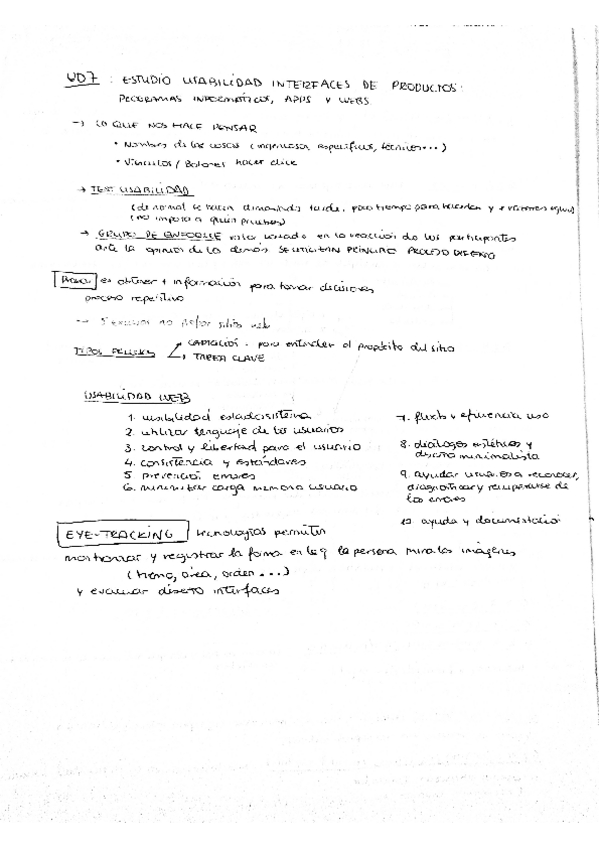 UD7 : ESTUDIO USABILIDAD INTERFACES DE PRODUCTOS:
PROGRAMAS INFORMÁTICOS, APPS Y WEBS
→ LO QUE NOS HACE PENSAR
• Nombres de las cosas (ingeniosos, específicos, técnicos...)
• Vínculos / Botones hacer click
→ TEST USABILIDAD
(de normal se hacen demasiado tarde, poco tiempo para hacerlos y
(no importa a quién pruebes)
→ GRUPOS DE ENFOQUE basado en la reacción de los participantes
ante la opinión de los demás SE UTILIZAN PRINCIPIO PROCESO DISEÑO
es obtener + información para tomar decisiones
proceso repetitivo
no mejor sitios web
TIPOS PRUEBAS
CAPTACIÓN. para entender el propósito del sitio
TAREA CLAVE
USABILIDAD WEB
1. visibilidad estado sistema
2. utilizar lenguaje de los usuarios
3. control y libertad para el usuario
4. consistencia y estándares
5 prevenció errores
6. minimizar carga memoria usuario
7. flexib y eficiencia uso
8. diálogos estéticos y
diseño minimalista
9. ayudar usuarios a reconocer,
diagnosticar y recuperarse de
los errores
10 ayuda y documentació
EYE-TRACKING tecnologías permiten
monitorizar y registrar la forma en la q la persona mira las imágenes
(tiempo, área, orden...)
y evaluar diseño interfaces